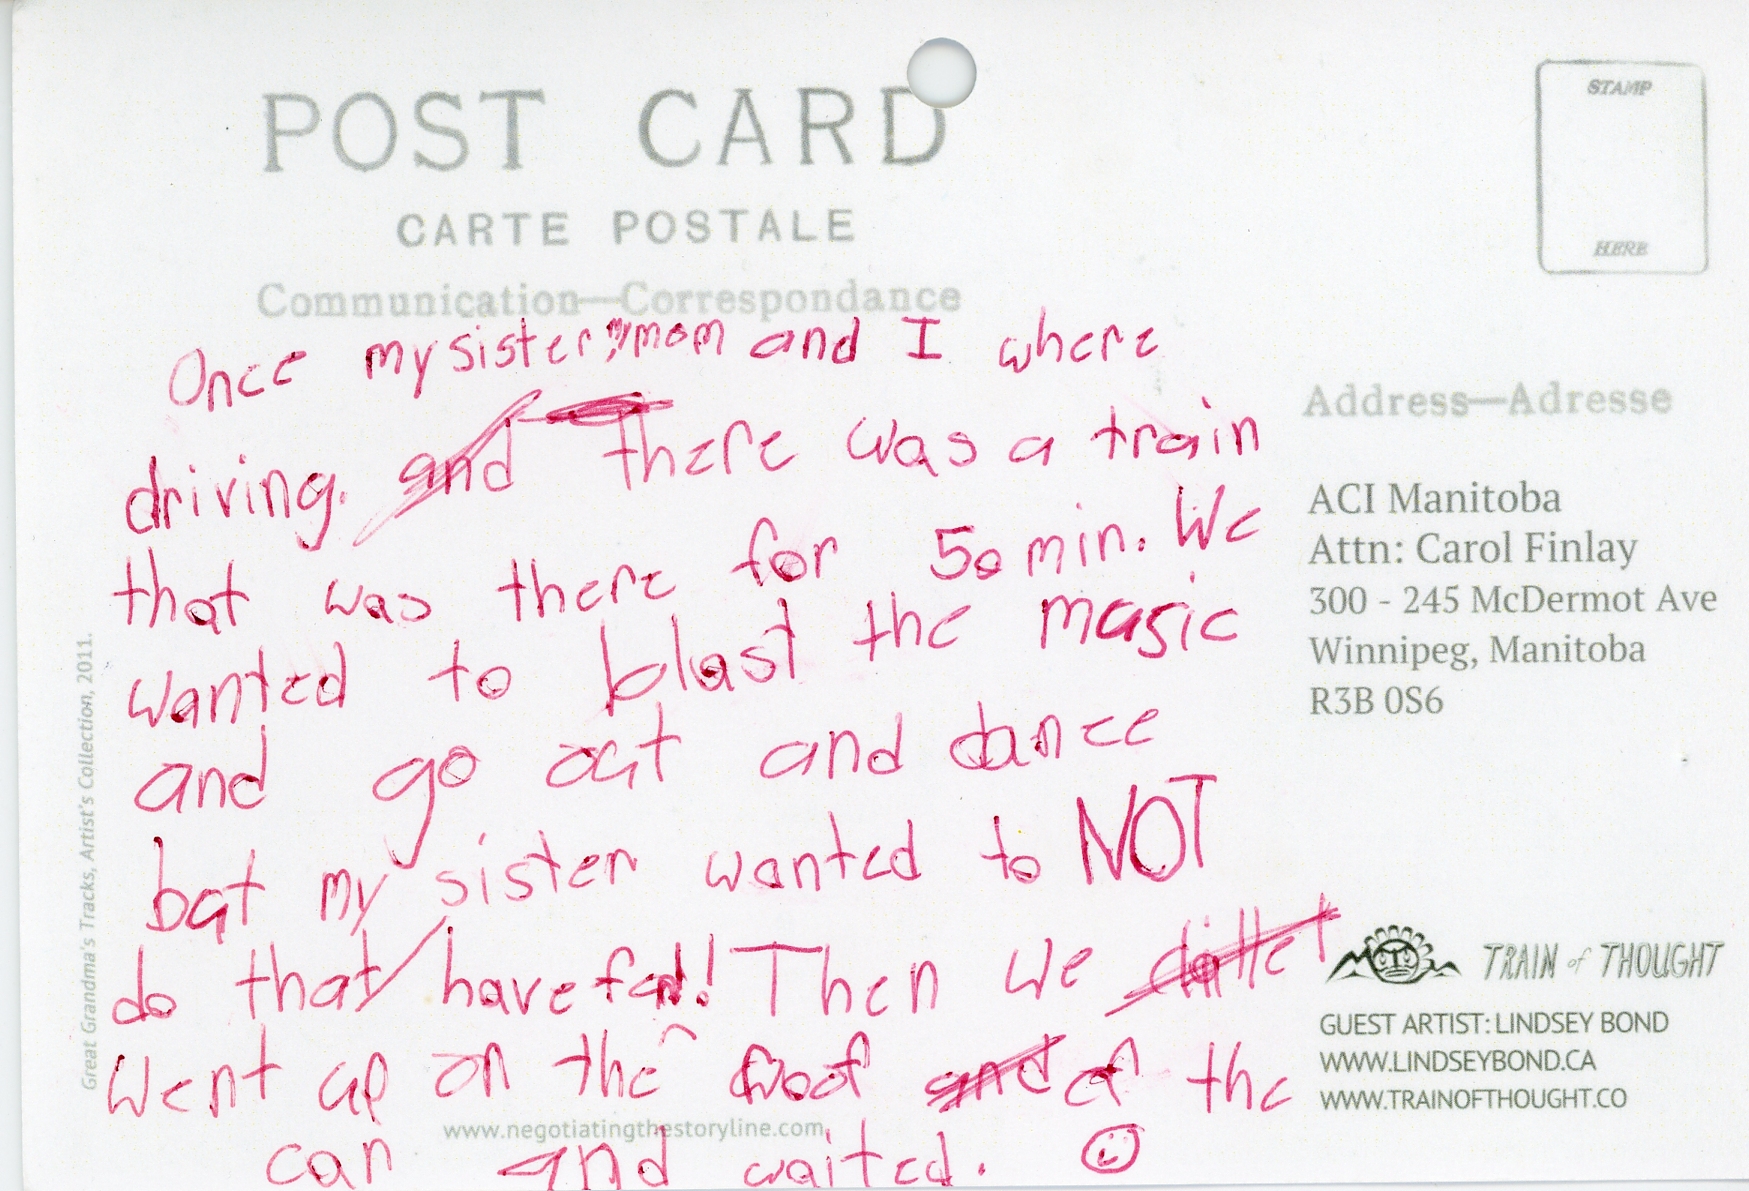 POST CARD
CARTE POSTALE
Communication—Correspondance
STAMP
HERE
Once my sister, mom and I where
driving. and There was a train
that was there for 50 min. We
wanted to blast the masic
and go out and dance
but my sister wanted to NOT
do that/ have fun! Then we
went up on the roof and of the
car and waited. ☺
Address—Adresse
ACI Manitoba
Attn: Carol Finlay
300 - 245 McDermot Ave
Winnipeg, Manitoba
R3B 0S6
TRAIN of THOUGHT
GUEST ARTIST: LINDSEY BOND
WWW.LINDSEYBOND.CA
WWW.TRAINOFTHOUGHT.CO
www.negotiatingthestoryline.com
Great Grandma's Tracks, Artist's Collection, 2011.